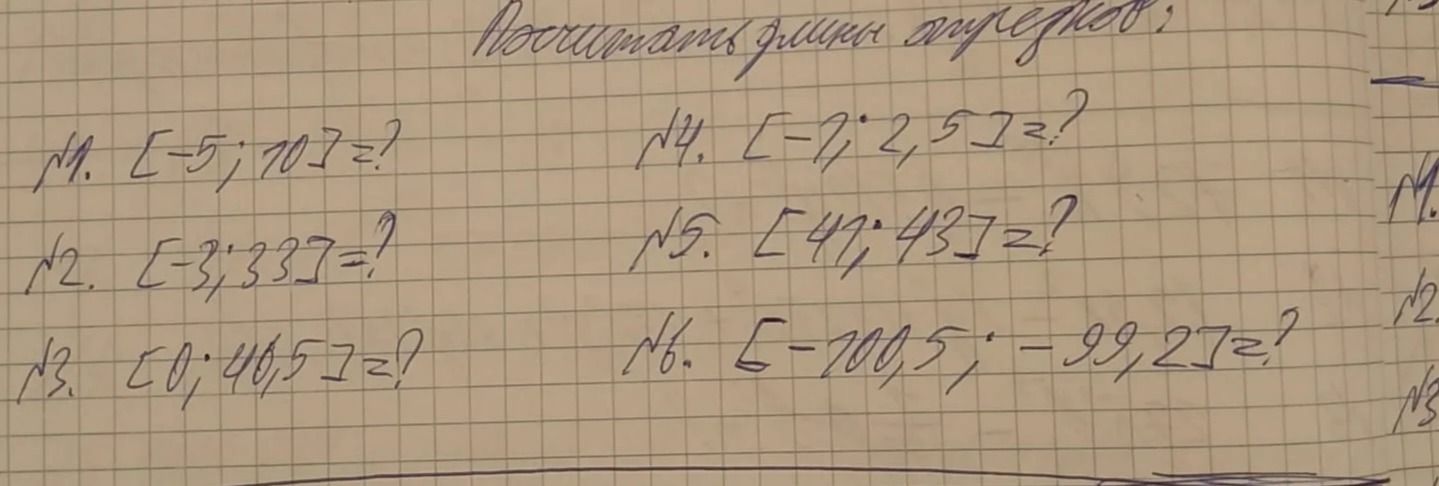 Посчитать длины отрезков:
№1. [-5; 10] = ?
№4. [-1; 2,5] = ?
№2. [-3; 33] = ?
№5. [41; 43] = ?
№3. [0; 40,5] = ?
№6. [-100,5; -99,2] = ?
№1.
№2.
№3